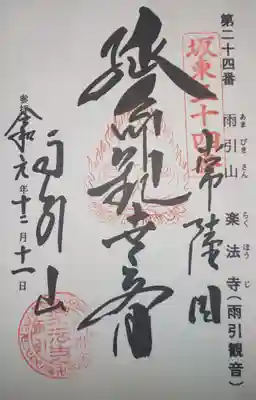 第二十四番 雨引山 楽法寺(雨引観音)
あまびきさん らくほうじ
坂東二十四番
常陸国
延命観世音
雨引山
参拝
令和元年十二月十一日